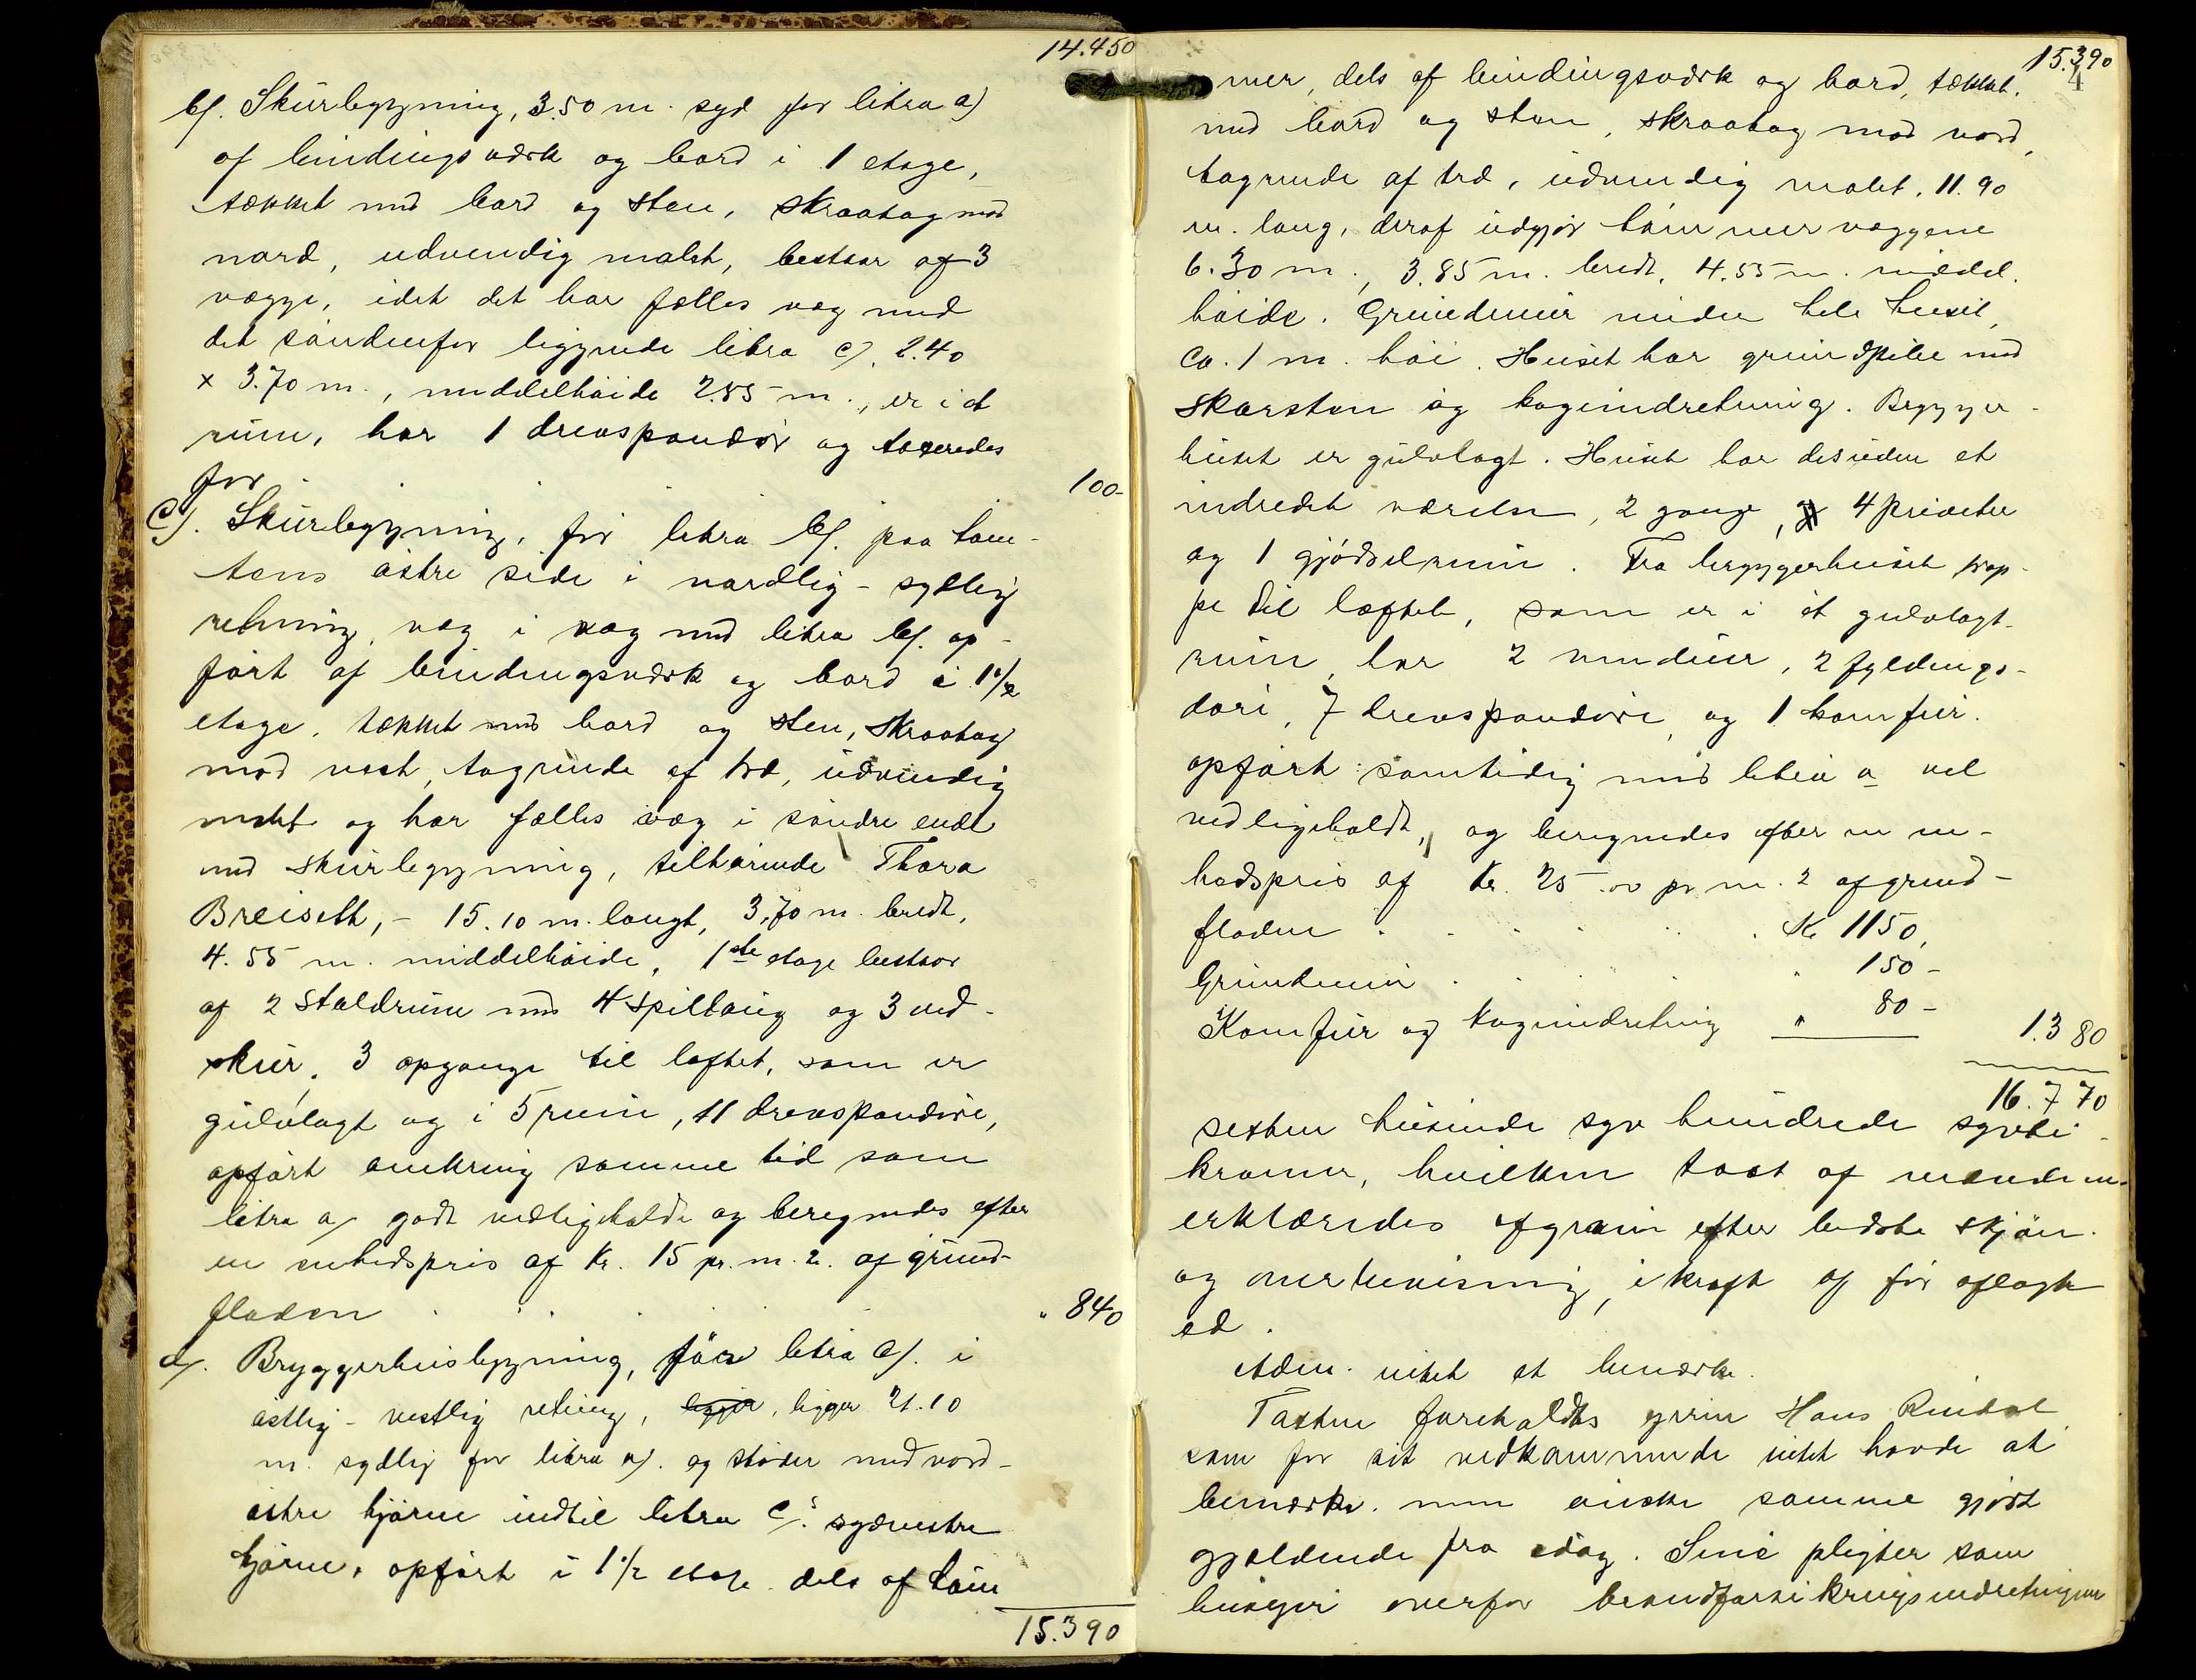 14.450
b/. Skurbygning, 3.50 m. syd for litra a)
af bindingsværk og bord i 1 etage,
tækket med bord og sten, skraatag mod
nord, udvendig malet, bestaar af 3
vægge, idet det har fælles væg med
det søndenfor liggende litra c/, 2.40
x 3.70 m., middelhøide 2.85 m., er i et
rum, har 1 drevspandør og taxeredes
for 100-
c/. Skurbygning, før litra b/. paa tom-
tens østre side i nordlig-sydlig
retning, væg i væg med litra b/. op-
ført af bindingsværk og bord i 1 1/2
etage, tækket med bord og sten, skraatag
mod vest, tagrende af træ, udvendig
malet og har fælles væg i søndre ende
med skurbygning, tilhørende Thora
Breiseth, - 15.10 m. langt, 3,70 m. bredt,
4.55 m. middelhøide, 1ste etage bestaar
af 2 staldrum med 4 spiltaug og 3 ved-
skur, 3 opgange til loftet, som er
gulvlagt og i 5 rum, 11 drevspandøre,
opført omkring samme tid som
litra a/ godt vedligeholdt og beregnedes efter
en enhedspris af Kr. 15 pr. m. 2. af grund-
fladen . . . . " 840
d/. Bryggerhusbygning, før litra a/. i
østlig-vestlig retning, ligger 21.10
m. sydlig for litra a/. og støder med nord-
østre hjørne indtil litra c/s sydvestre
hjørne, opført i 1 1/2 etage dels af tøm
15.390
15.390
4
mer, dels af bindingsværk og bord, tækket
med bord og sten, skraatag mod nord,
tagrende af træ, udvendig malet, 11.90
m. lang, deraf udgjør tømmervæggene
6.30 m., 3.85 m. bredt, 4.55 m. middel.
høide. Grundmur under hele huset,
ca. 1 m. høi. Huset har grundpibe med
skorsten og kogeindretning. Brygger-
huset er gulvlagt. Huset har desuden et
indredet værelse, 2 gange, 4 priveter
og 1 gjødselrum. Fra bryggerhuset trap-
pe til loftet, som er i et gulvlagt
rum, har 2 vinduer, 2 fyldings-
døre, 7 drevspandøre og 1 komfur.
opført samtidig med litra a vel
vedligeholdt, og beregnedes efter en en-
hedspris af Kr. 25.00 pr. m. 2 af grund-
fladen . . . . . . Kr 1150,
Grundmur . . . . 150-
Komfur og kogeindretning " 80- 1.380
16.770
sexten tusinde syv hundrede sytti
kroner, hvilken taxt af mændene
erklæredes afgiven efter bedste skjøn
og overbevisning, i kraft af før aflagt
ed.
Adm. intet at bemærke.
Taxten foreholdtes eieren Hans Rindal
som for sit vedkommende intet havde at
bemærke, men ønsket samme gjort
gjældende fra idag. Sine pligter som
huseier overfor brandforsikringsindretningen